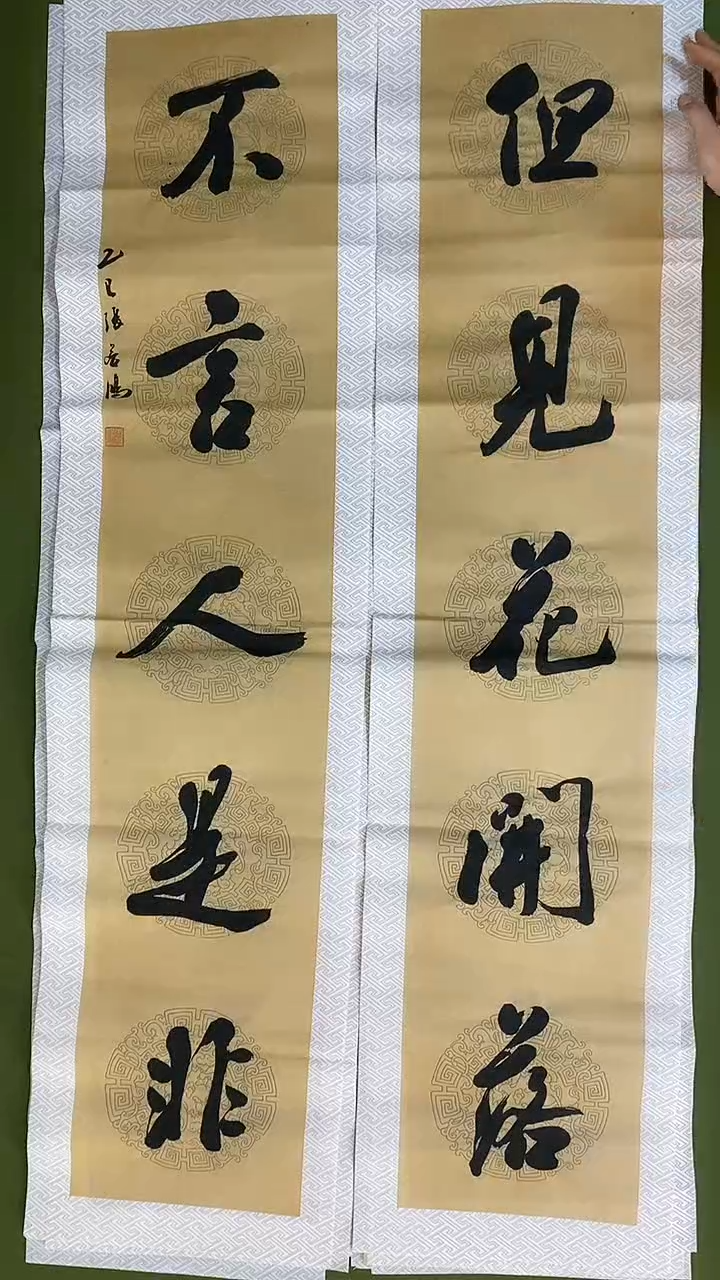 但見花開落
不言人是非
乙巳張居鴻